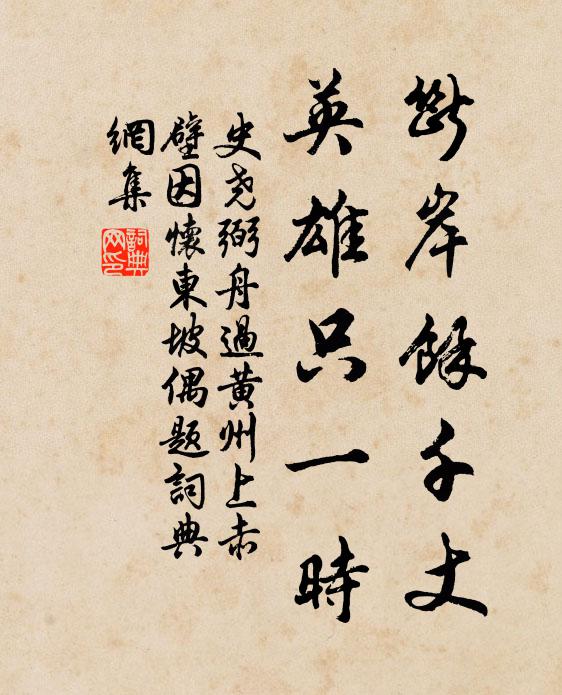 斷岸餘千丈
英雄只一時
史堯弼舟過黃州上赤
壁因懷東坡偶題詞典
網集
詞典
网印